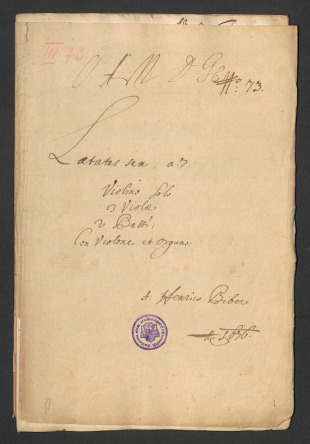 III 73
O A M D Gl
No: 73.
Lætatus sum. a. 7.
Violino Solo
3 Viole
2 Bassi.
Con Violone et Organo
A Henrico Biber